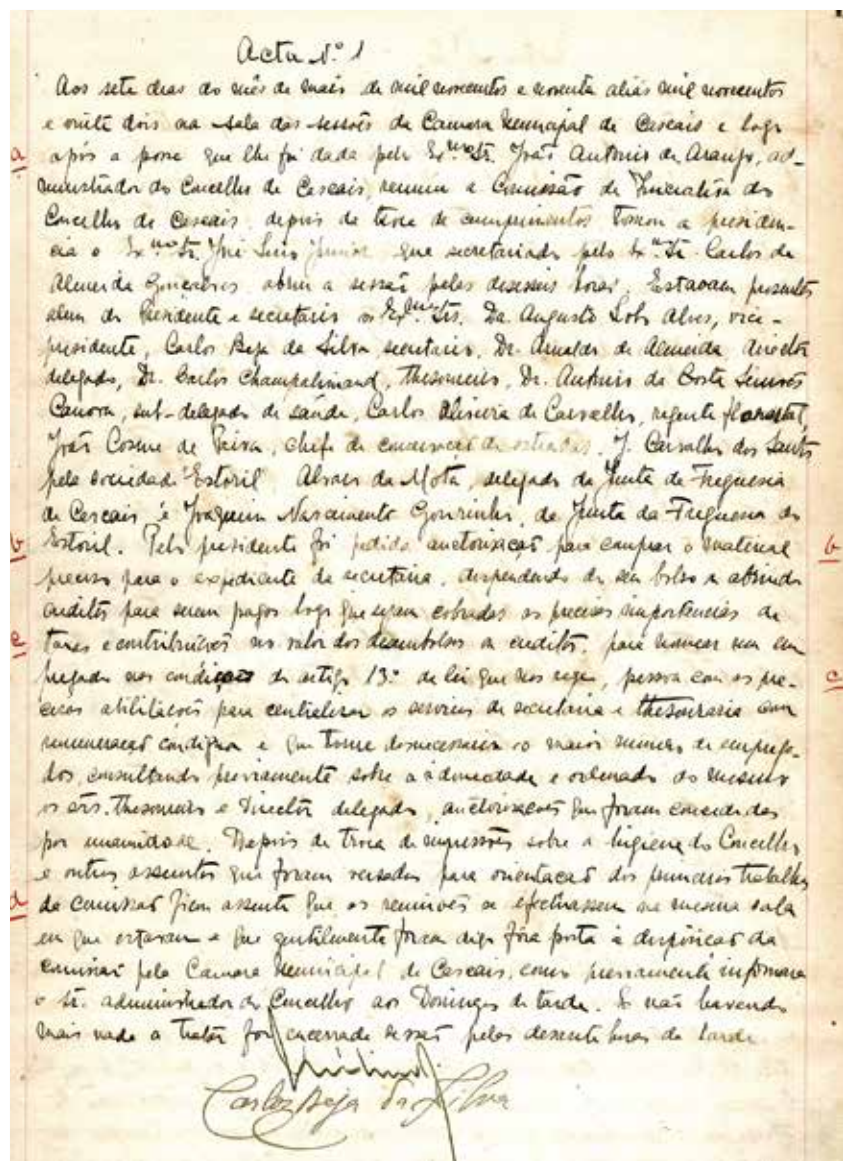 Acta N.º 1
Aos sete dias do mês de maio de mil novecentos e noventa aliás mil novecentos
e vinte dois na sala das sessões da Camara Municipal de Cascais e logo
a
após a posse que lhe foi dada pelo Exmo Sr. João Antonio de Araujo, ad-
ministrador do Concelho de Cascais, reuniu a Comissão de Iniciativa do
Concelho de Cascais, depois de troca de cumprimentos tomou a presiden-
cia o Exmo Sr. José Luis Junior que secretariado pelo Exmo Sr. Carlos de
Almeida Gonçalves abriu a sessão pelas deseseis horas. Estavam presentes
alem do Presidente e secretario os Exmos Srs. Dr. Augusto Lobo Alves, vice-
presidente, Carlos Beja da Silva secretario, Dr. Arnaldo de Almeida director
delegado, Dr. Carlos Champalimaud, thesoureiro, Dr. Antonio da Costa
Canova, sub-delegado de saúde, Carlos Oliveira de Carvalho, regente florestal,
João Cosme de Paiva, chefe de conservação de estradas, J. Carvalho dos Santos
pela sociedade Estoril Alvaes da Mota, delegado da Junta de Freguesia
de Cascais e Joaquim Nascimento Gourinho, da Junta da Freguesia do
b
Estoril. Pelo presidente foi pedida auctorisação para comprar o material
b
preciso para o expediente da secretaria, dispendendo do seu bolso ou abrindo
creditos para serem pagos logo que sejam cobradas as precisas importencias de
c
taxas e contribuições no valor dos desembolsos ou creditos, para nomear um em
pregado nas condições do artigo 13º da lei que nos rege, pessoa com as pre-
c
cisas abilitações para centralizar os servicos de secretaria e thesouraria com
remuneração condigna e que torne desnecessario o maior numero de emprega-
dos, consultando previamente sobre a idoneidade e ordenado do mesmo
os srs. thesoureiro e Director delegado, auctorisações que foram concedidas
por unanimidade. Depois de troca de impressões sobre a higiene do Concelho
e outros assuntos que foram versados para orientação dos primeiros trabalhos
d
da comissão ficou assente que as reuniões se efectuassem na mesma sala
em que estavam e que gentilmente foram digo fôra posta á disposição da
comissão pela Camara Municipal de Cascais, como previamente informara
o sr. administrador do Concelho aos Domingos de tarde. E não havendo
mais nada a tratar foi encerrada sessão pelas desesete horas da tarde
Carlos Beja da Silva